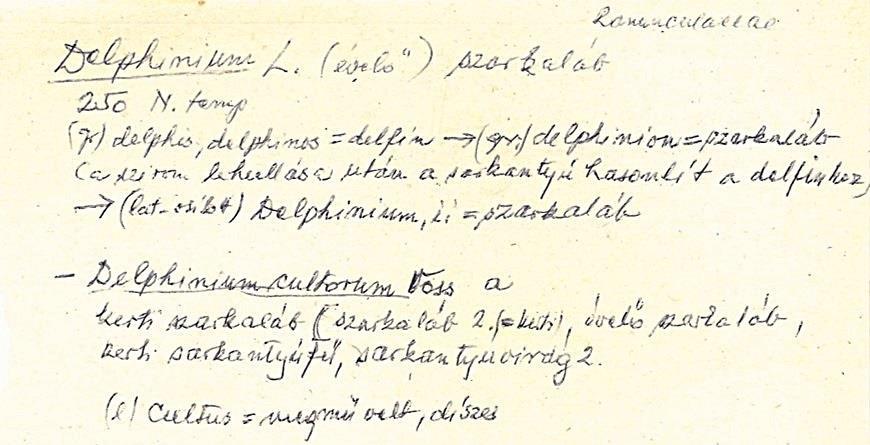 Ranunculaceae
Delphinium L. (évelő) szarkaláb
250 N. temp
(g) delphis, delphinos = delfin → (gr.) delphinion = szarkaláb
(a szirom lehullása után a sarkantyú hasonlít a delfinhez)
→ (lat-osított) Delphinium, ii = szarkaláb
– Delphinium cultorum Voss a
kerti szarkaláb (szarkaláb 2. (= kerti), évelő szarkaláb,
kerti sarkantyúfű, sarkantyúvirág 2.
(l) cultus = megművelt, díszes